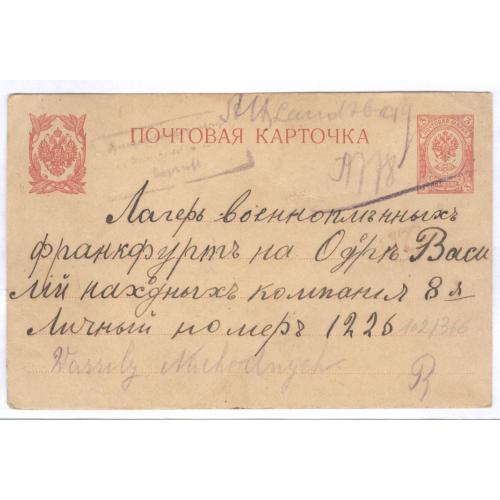 Landsberg
ПОЧТОВАЯ КАРТОЧКА
Geprüft
Лагерь военноплѣнныхъ
франкфуртъ на Одрѣ Васи
лій находныхъ компания 8 я
Личный номеръ 1226 1021366
Wassily Nachodnych
R